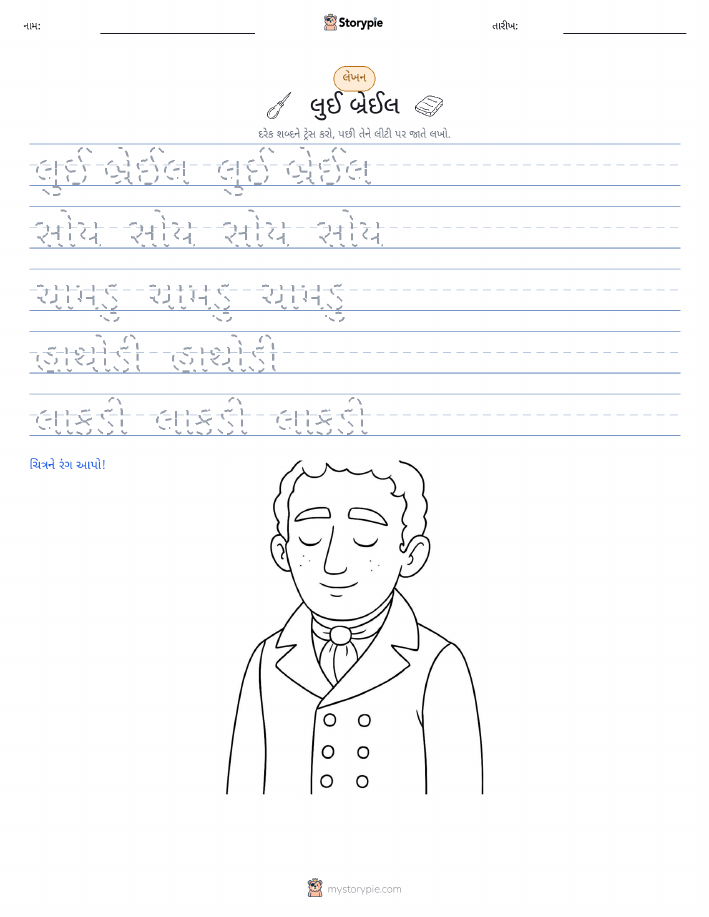 નામ:
Storypie
તારીખ:
લેખન
લુઈ બ્રેઈલ
દરેક શબ્દને ટ્રેસ કરો, પછી તેને લીટી પર જાતે લખો.
લુઈ બ્રેઈલ લુઈ બ્રેઈલ
સોય સોય સોય સોય
ચામડું ચામડું ચામડું
હાથોડી હાથોડી
લાકડી લાકડી લાકડી
ચિત્રને રંગ આપો!
mystorypie.com